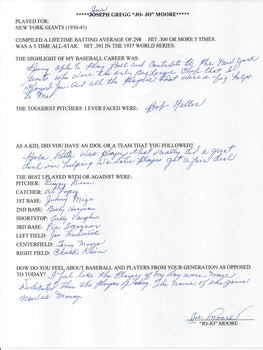 Joe
*****JOSEPH GREGG "JO-JO" MOORE*****
PLAYED FOR:
NEW YORK GIANTS (1930-41)
COMPILED A LIFETIME BATTING AVERAGE OF .298 HIT .300 OR MORE 5 TIMES.
WAS A 5 TIME ALL-STAR. HIT .391 IN THE 1937 WORLD SERIES.
THE HIGHLIGHT OF MY BASEBALL CAREER WAS:
Being able to Play Ball and Contribute to the New York
Giants who were the only Big League Club that I
Played for. And all the Players that were a big help
to me
THE TOUGHEST PITCHERS I EVER FACED WERE: Bob Feller
AS A KID, DID YOU HAVE AN IDOL OR A TEAM THAT YOU FOLLOWED?
Babe Ruth was player that really did a great
deal in helping the player get a fair deal
THE BEST I PLAYED WITH OR AGAINST WERE:
PITCHER: Dizzy Dean
CATCHER: Al Lopez
1ST BASE: Johnny Mize
2ND BASE: Billy Herman
SHORTSTOP: Arky Vaughan
3RD BASE: Pie Traynor
LEFT FIELD: Joe Medwick
CENTERFIELD: Terry Moore
RIGHT FIELD: Chuck Klein
HOW DO YOU FEEL ABOUT BASEBALL AND PLAYERS FROM YOUR GENERATION AS OPPOSED
TO TODAY? I feel like the Players of my day were more
Dedicated than the players of today. The name of the game
now is Money
Joe Moore
"JO-JO" MOORE